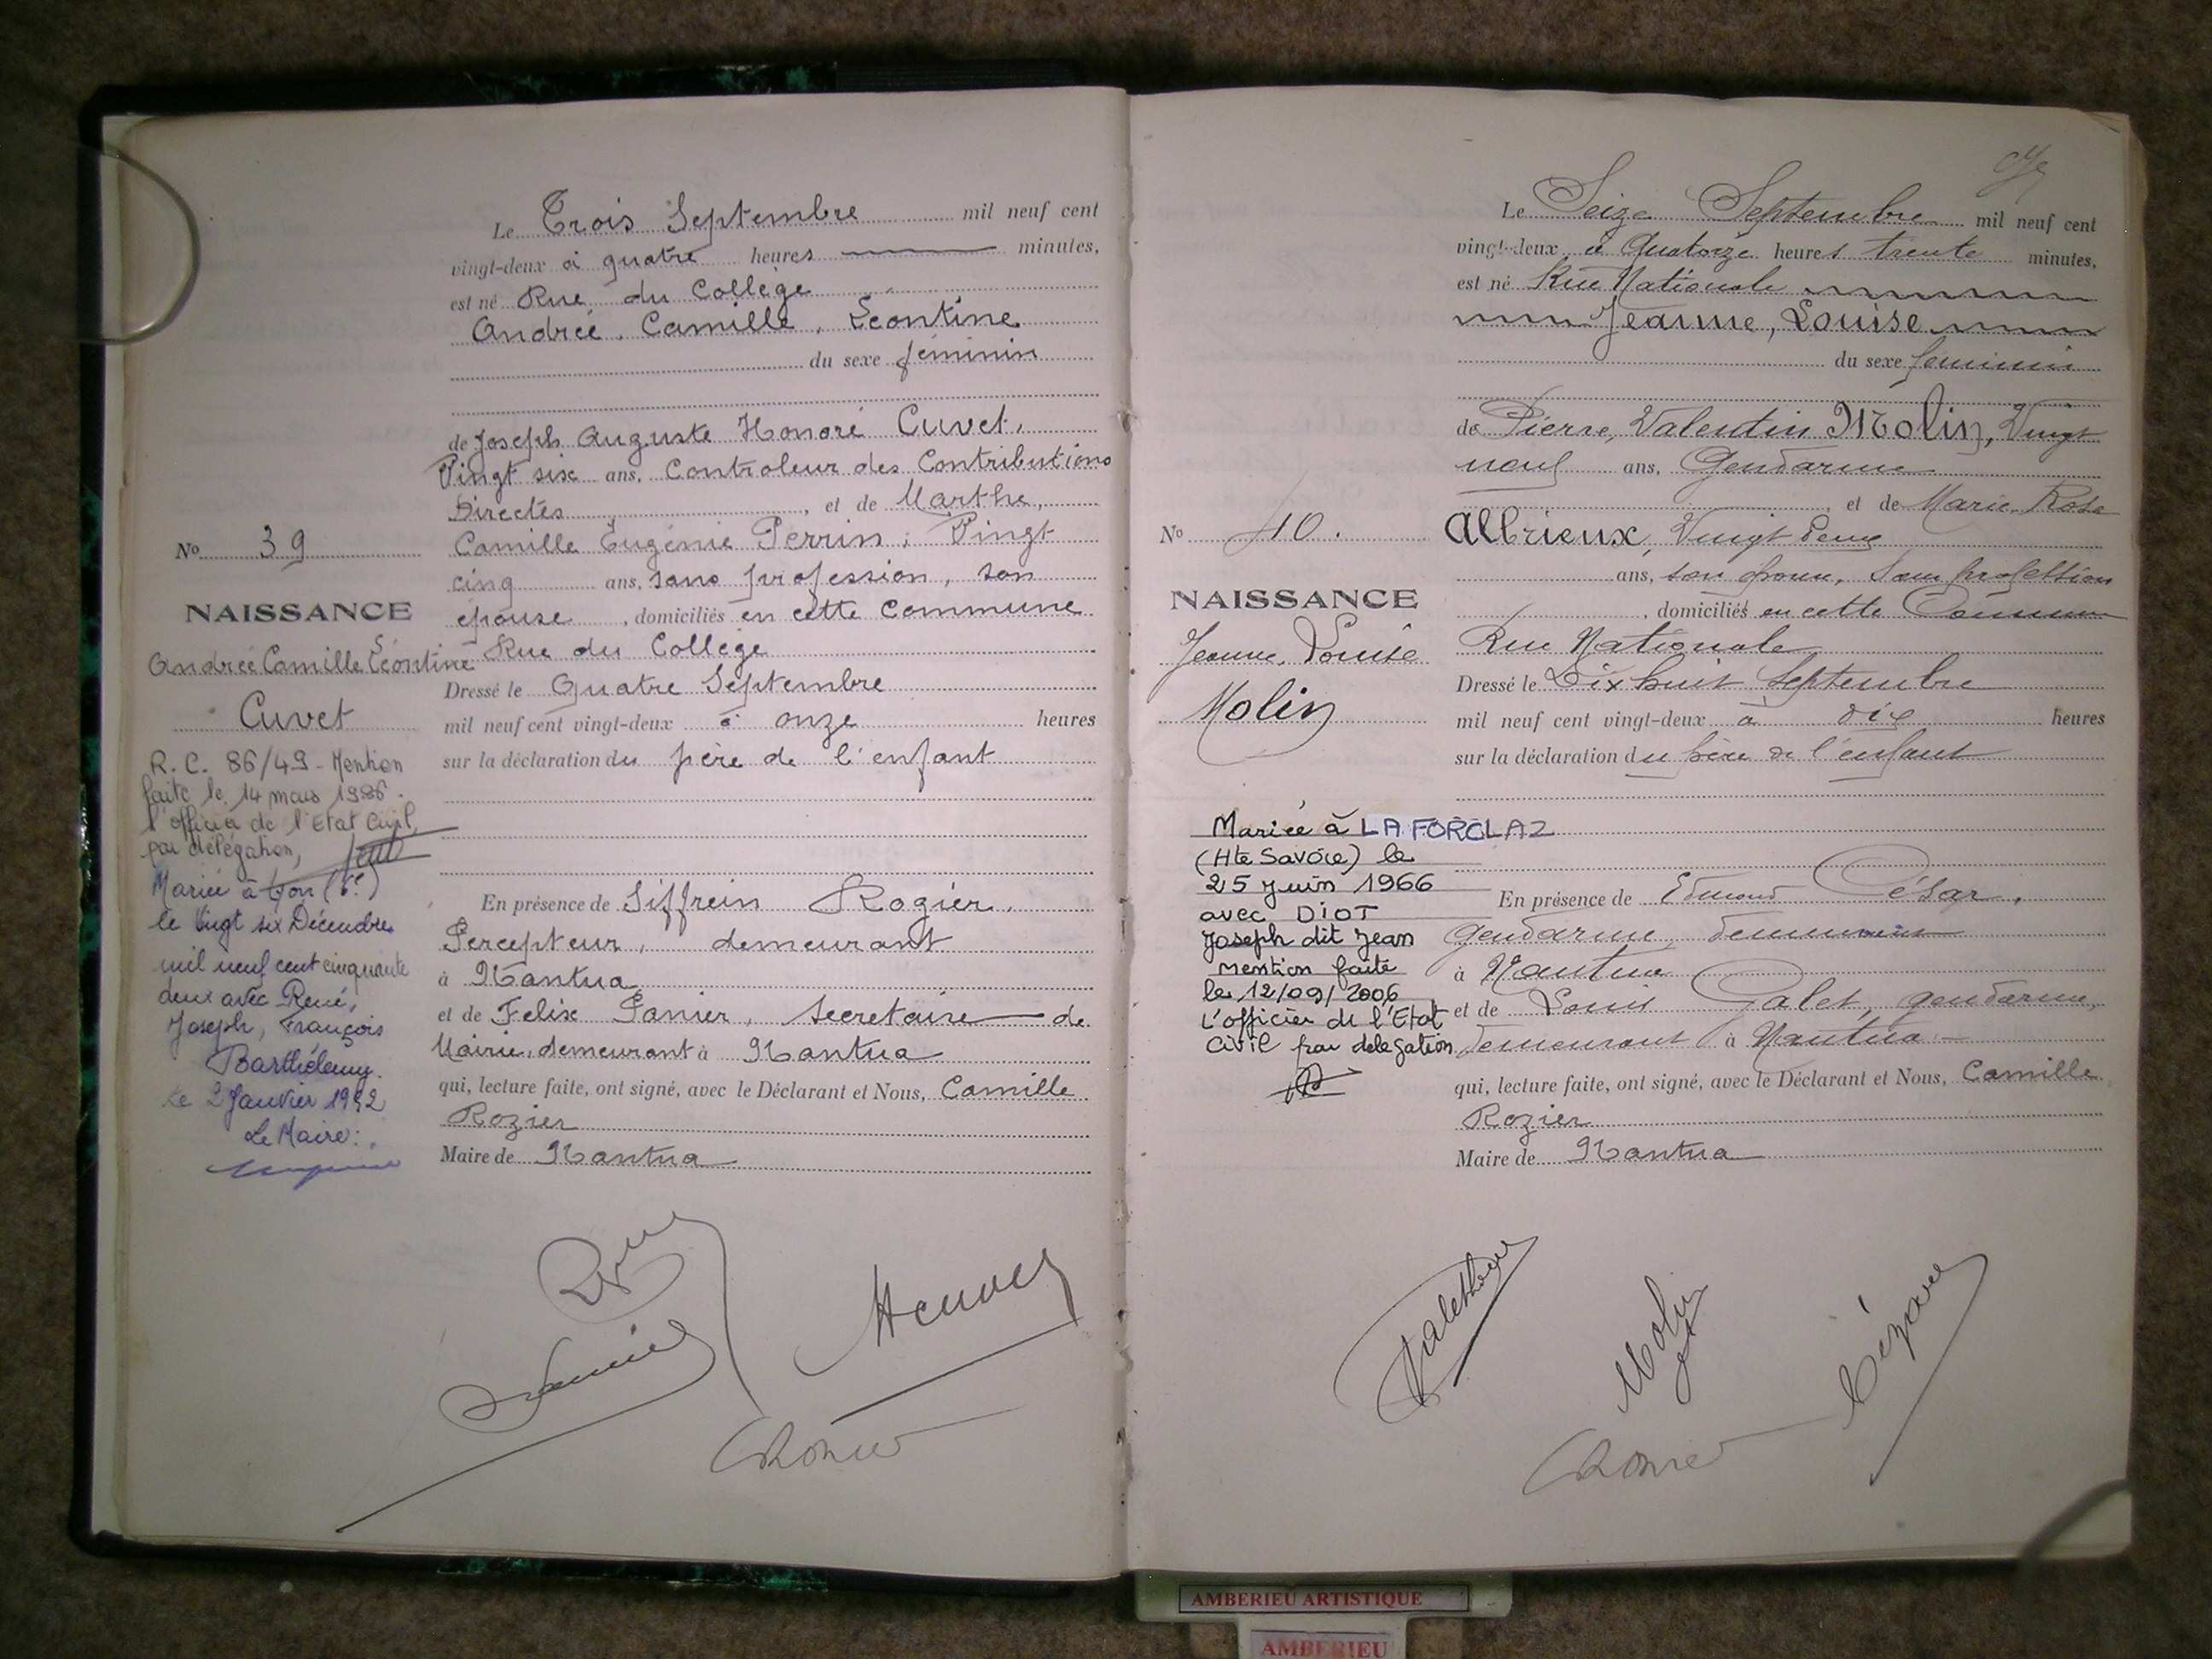 Le Trois Septembre mil neuf cent
vingt-deux à quatre heures minutes,
est né Rue du Collège
Andrée, Camille, Léontine
du sexe féminin
de Joseph Auguste Honoré Cuvet,
Vingt six ans, Controleur des Contributions
Directes, et de Marthe,
Camille Eugénie Perrin, Vingt
cinq ans, sans profession, son
épouse, domiciliés en cette commune
Rue du Collège
Dressé le Quatre Septembre
mil neuf cent vingt-deux à onze heures
sur la déclaration du père de l'enfant
En présence de Siffrein Rogier,
Percepteur, demeurant
à Nantua
et de Felix Panier, Secretaire de
Mairie, demeurant à Nantua
qui, lecture faite, ont signé, avec le Déclarant et Nous, Camille
Rozier
Maire de Nantua
No 39
NAISSANCE
Andrée Camille Léontine
Cuvet
R.C. 86/49 - Mention
faite le 14 mars 1986.
l'officier de l'Etat Civil
par délégation,
Mariée à Lyon (6e)
le vingt six Décembre
mil neuf cent cinquante
deux avec René,
Joseph, François
Barthélemy.
Le 2 Janvier
Le Maire:
Le Seize Septembre mil neuf cent
vingt-deux, à Quatorze heures trente minutes,
est né Rue Nationale
Jeanne, Louise
du sexe feminin
de Pierre, Valentin Molin, Vingt
neuf ans, Gendarme
et de Marie Rose
Albrieux, Vingt deux
ans, son épouse, Sans profession
, domiciliés en cette Commune
Rue Nationale
Dressé le Dix huit Septembre
mil neuf cent vingt-deux à dix heures
sur la déclaration du père de l'enfant
En présence de Edmond César,
gendarme, demeurant
à Nantua
et de Louis Galet, gendarme,
demeurant à Nantua
qui, lecture faite, ont signé, avec le Déclarant et Nous, Camille
Rozier
Maire de Nantua
No 40.
NAISSANCE
Jeanne, Louise
Molin
Mariée à LA FORCLAZ
(Hte Savoie) le
25 Juin 1966
avec DIOT
Joseph dit Jean
mention faite
le 12/09/2006
L'officier de l'Etat
Civil par delegation
Molin
Rozier
AMBERIEU ARTISTIQUE
AMBERIEU